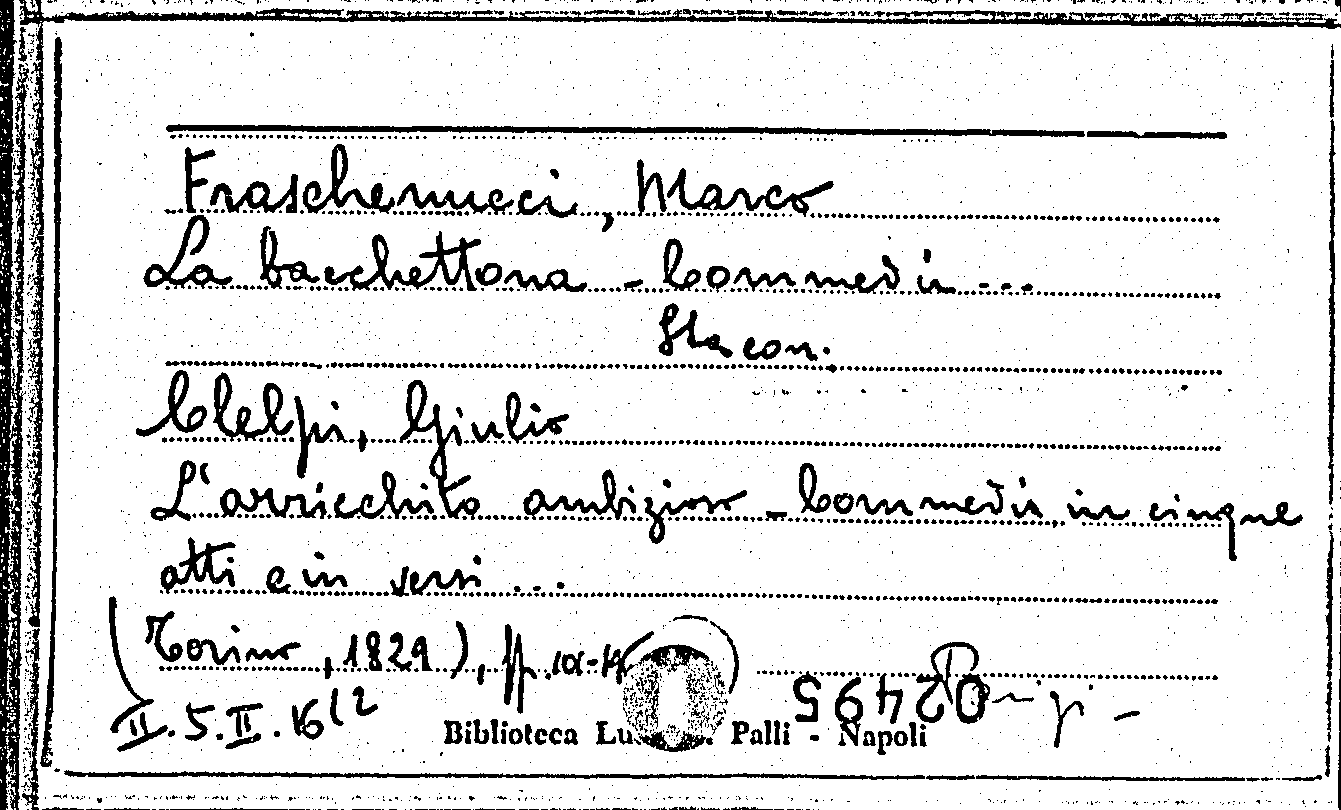 Fraschenucci, Marco
La bacchettona - Commedia ...
Sta con:
Clelpi, Giulio
L'arricchito ambizioso - Commedia in cinque
atti e in versi ...
(Torino, 1829), pp.
II. 5. II. 16 (2
02495
Biblioteca Lu Palli - Napoli